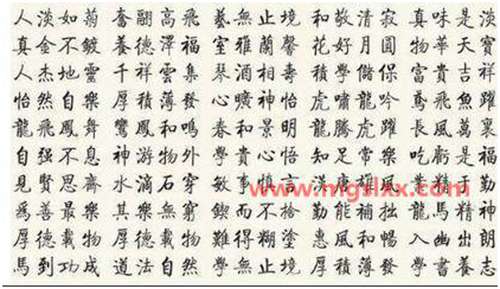 人淡如菊 奮翮高飛 藝無止境 和敬清寂 真味是淡
真金不鍍 養德澤福 室雅蘭馨 花好月圓 物華天寶
人杰地靈 千祥雲集 琴 相壽 積學儲 富貴吉祥
怡然自樂 厚積薄發 心曠神怡 虎嘯龍吟 鳶飛魚躍
龍飛鳳舞 鸞鳳和鳴 春和景明 龍騰虎躍 長風萬裏
自强不息 神游物外 學貴心悟 知足常樂 吃虧是福
見賢思齋 水滴石穿 敏事慎言 漢唐 風 業精于勤
www.mgslxx.com
爲善最樂 其樂無窮 鍥而不捨 勤能補拙 龍馬精神
厚德載物 厚德載物 難得糊塗 惠風和暢 入幽出朗
馬到功成 道法自然 學無止境 厚積薄發 學書養志